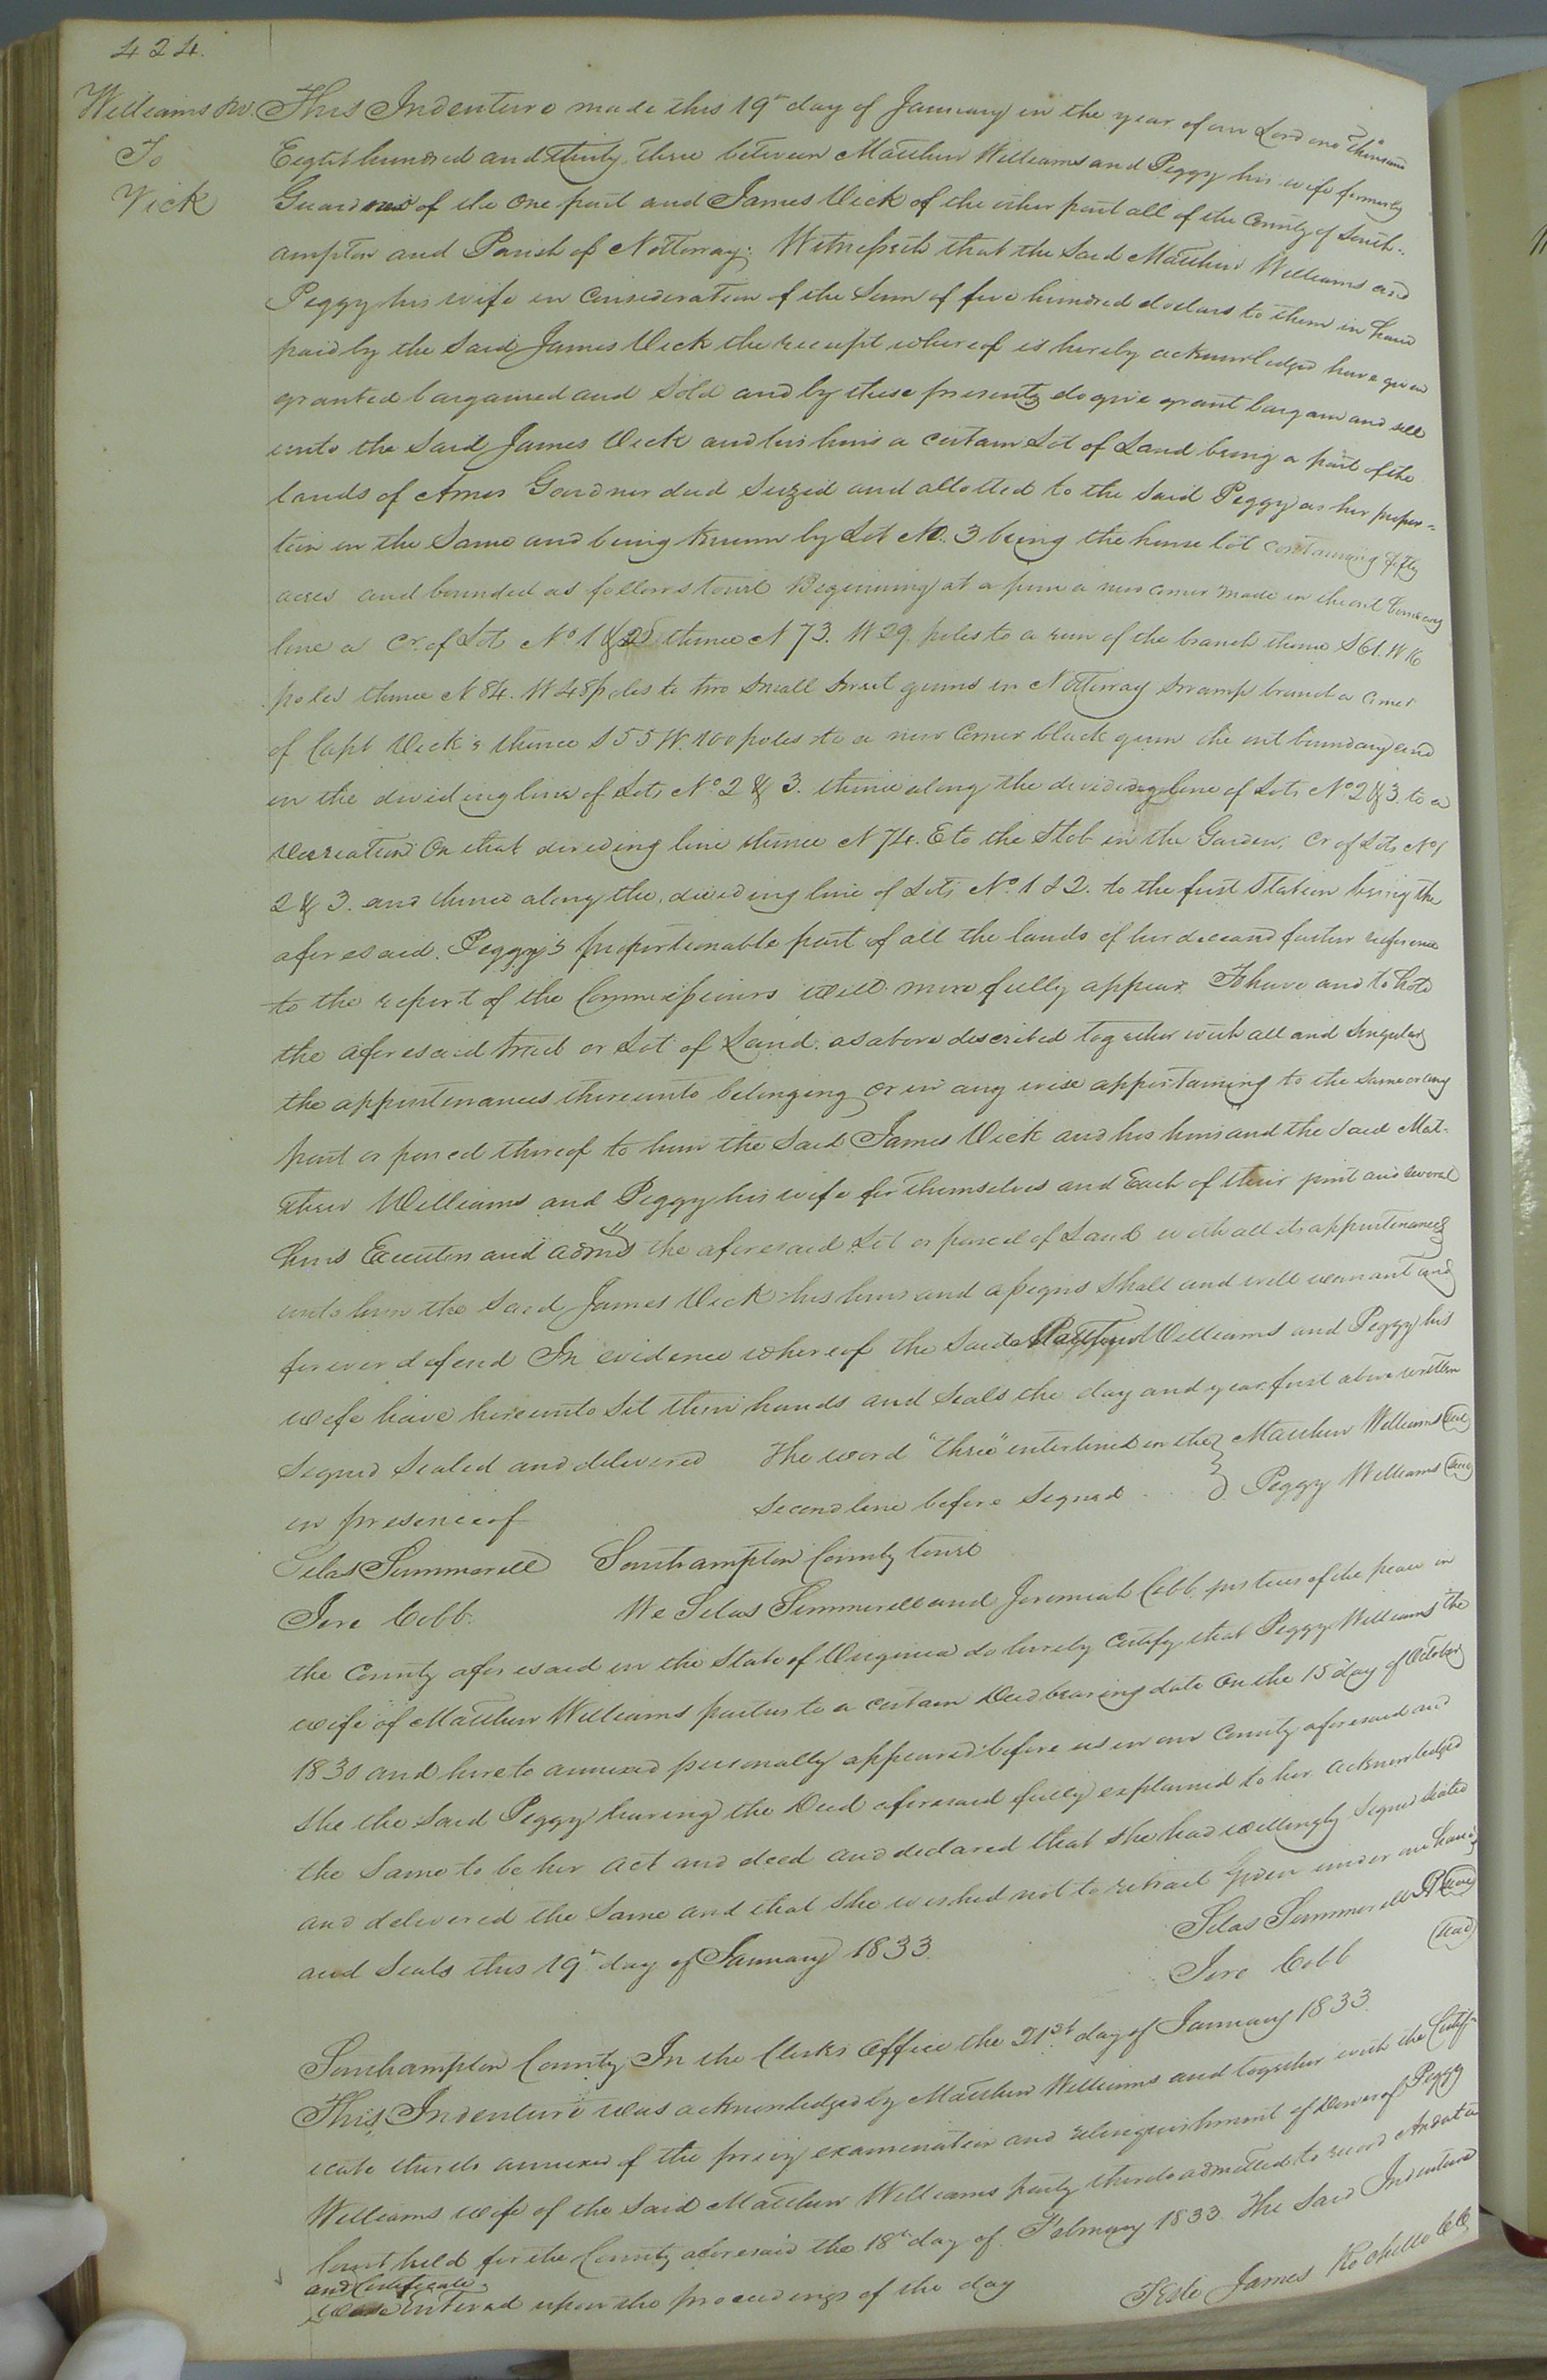 424.
Williams &c. This Indenture made this 19th day of January in the year of our Lord one thousand
To Eight hundred and thirty three between Matthew Williams and Peggy his wife formerly
Vick Guardner of the one part and James Vick of the other part all of the County of South-
ampton and Parish of Nottoway. Witnesseth that the Said Matthew Williams and
Peggy his wife in Consideration of the Sum of five hundred dollars to them in hand
paid by the Said James Vick the receipt whereof is hereby acknowledged have given
granted bargained and Sold and by these presents do give grant bargain and sell
unto the Said James Vick and his heirs a certain Lot of Land being a part of the
lands of Amos Gardner decd Seized and allotted to the Said Peggy as her propor-
tion in the Same and being known by Lot No. 3 being the house lot containing fifty
acres and bounded as follows towit Beginning at a pine a new corner made in the out boundary
line a Cr. of Lots No 1 & 2 thence N 73. W 29. poles to a run of the branch thence S 61. W 16
poles thence N 84. W 48 poles to two Small Sweet gums in Nottoway Swamp branch a corner
of Capt Vick's thence S 55 W. 100 poles to a new Corner black gum the out boundary and
in the dividing line of Lots No 2 & 3. thence along the dividing line of Lots No 2 & 3. to a
Vecreation On that dividing line thence N 74. E to the Stob in the Garden, Cr of Lots No 1
2 & 3. and thence along the dividing line of Lots No. 1 & 2. to the first Station being the
aforesaid Peggy's proportionable part of all the lands of her decd and further reference
to the report of the Commissioners will more fully appear. To have and to hold
the aforesaid tract or Lot of Land as above described together with all and Singular
the appurtenances thereunto belonging or in any wise appertaining to the Same or any
part or parcel thereof to him the Said James Vick and his heirs and the Said Mat-
thew Williams and Peggy his wife for themselves and Each of their joint and several
heirs Executors and admrs the aforesaid Lot or parcel of Land with all its appurtenances
unto him the Said James Vick his heirs and assigns Shall and will warrant and
forever defend In evidence whereof the Said Matthew Williams and Peggy his
wife have hereunto Set their hands and Seals the day and year first above written
Signed Sealed and delivered The word "three" interlined in the } Matthew Williams (seal)
in presence of Second line before Signed } Peggy Williams (seal)
Silas Summerell Southampton County towit
Jere Cobb. We Silas Summerell and Jeremiah Cobb justices of the peace in
the County aforesaid in the State of Virginia do hereby Certify that Peggy Williams the
wife of Matthew Williams parties to a certain Deed bearing date On the 15 day of October
1830 and hereto annexed personally appeared before us in our County aforesaid and
She the Said Peggy having the Deed aforesaid fully explained to her acknowledged
the Same to be her act and deed and declared that She had willingly Signed Sealed
and delivered the Same and that She wished not to retract Given under our hands
and Seals this 19th day of January 1833. Silas Summerell (seal)
Jere Cobb (seal)
Southampton County In the Clerks Office the 21st day of January 1833.
This Indenture was acknowledged by Matthew Williams and together with the Certif-
icate thereto annexed of the privy examination and relinquishment of dower of Peggy
Williams wife of the Said Matthew Williams party thereto admitted to record And at a
Court held for the County aforesaid the 18th day of February 1833. The Said Indenture
and Certificate
were Entered upon the proceedings of the day
Teste James Rochelle CC